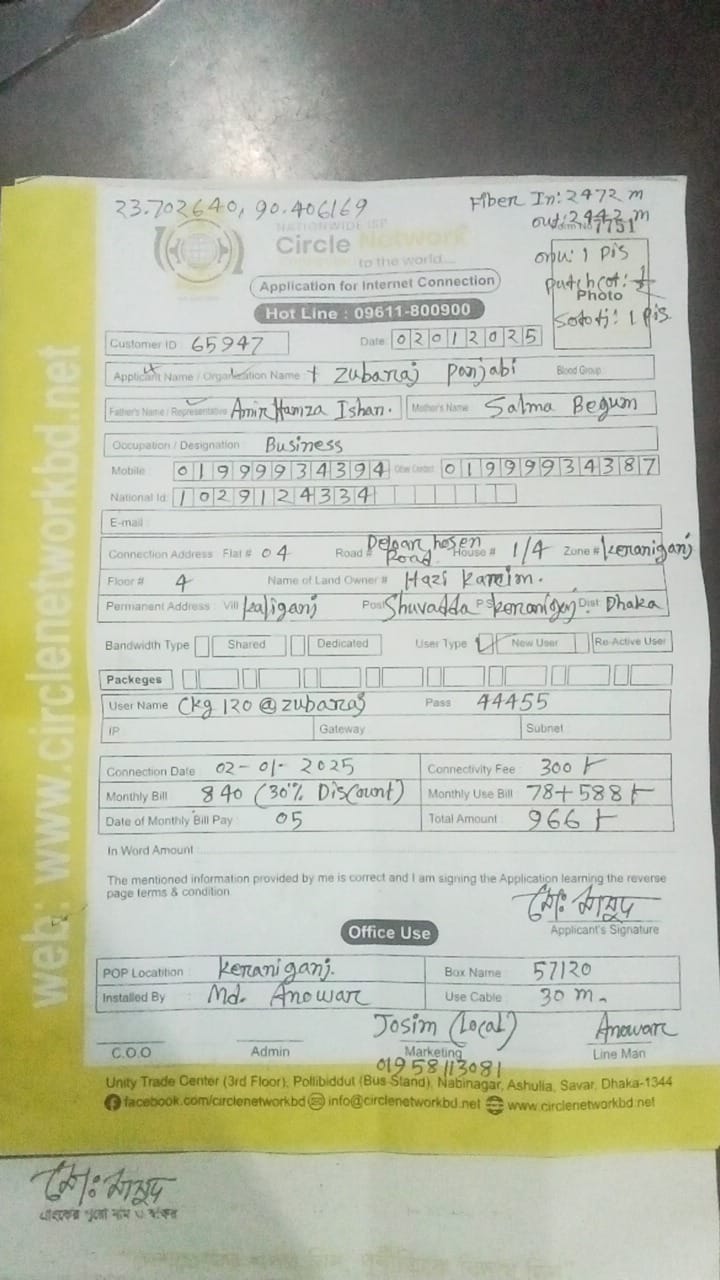 23.702640, 90.406169
Fiber In: 2472 m
out: 2442 m
7751
NATIONWIDE ISP
Circle Network
to the world...
onu: 1 pis
Photo
1 pis
Application for Internet Connection
Hot Line : 09611-800900
Customer ID : 65947
Date : 02012025
Applicant Name / Organization Name : zubaraj panjabi Blood Group :
Father's Name / Representative Amir Hamza Ishan. Mother's Name Salma Begum
Occupation / Designation : Business
Mobile : 01999934394 Other Contact : 01999934387
National Id: 1029124334
E-mail :
Connection Address Flat # 04 Road # Deloar hosen Road House # 1/4 Zone # keraniganj
Floor # 4 Name of Land Owner # Hazi kareim.
Permanent Address : Vill kaliganj Post Shuvadda P.S keraniganj Dist: Dhaka
Bandwidth Type Shared Dedicated User Type New User Re-Active User
Packeges
User Name Ckg 120 @ zubaraj Pass 44455
IP Gateway Subnet
Connection Date : 02-01-2025 Connectivity Fee : 300
Monthly Bill 840 (30% Discount) Monthly Use Bill 78+588
Date of Monthly Bill Pay : 05 Total Amount : 966
In Word Amount
The mentioned information provided by me is correct and I am signing the Application learning the reverse
page terms & condition.
মোঃ মাসুদ
Applicant's Signature
Office Use
POP Locatition : keraniganj. Box Name : 57120
Installed By : Md. Anowar Use Cable : 30 m.
Josim (Local) Anowar
C.O.O Admin Marketing Line Man
01958113081
Unity Trade Center (3rd Floor), Pollibiddut (Bus Stand), Nabinagar, Ashulia, Savar, Dhaka-1344
facebook.com/circlenetworkbd info@circlenetworkbd.net www.circlenetworkbd.net
web: www.circlenetworkbd.net
মোঃ মাসুদ